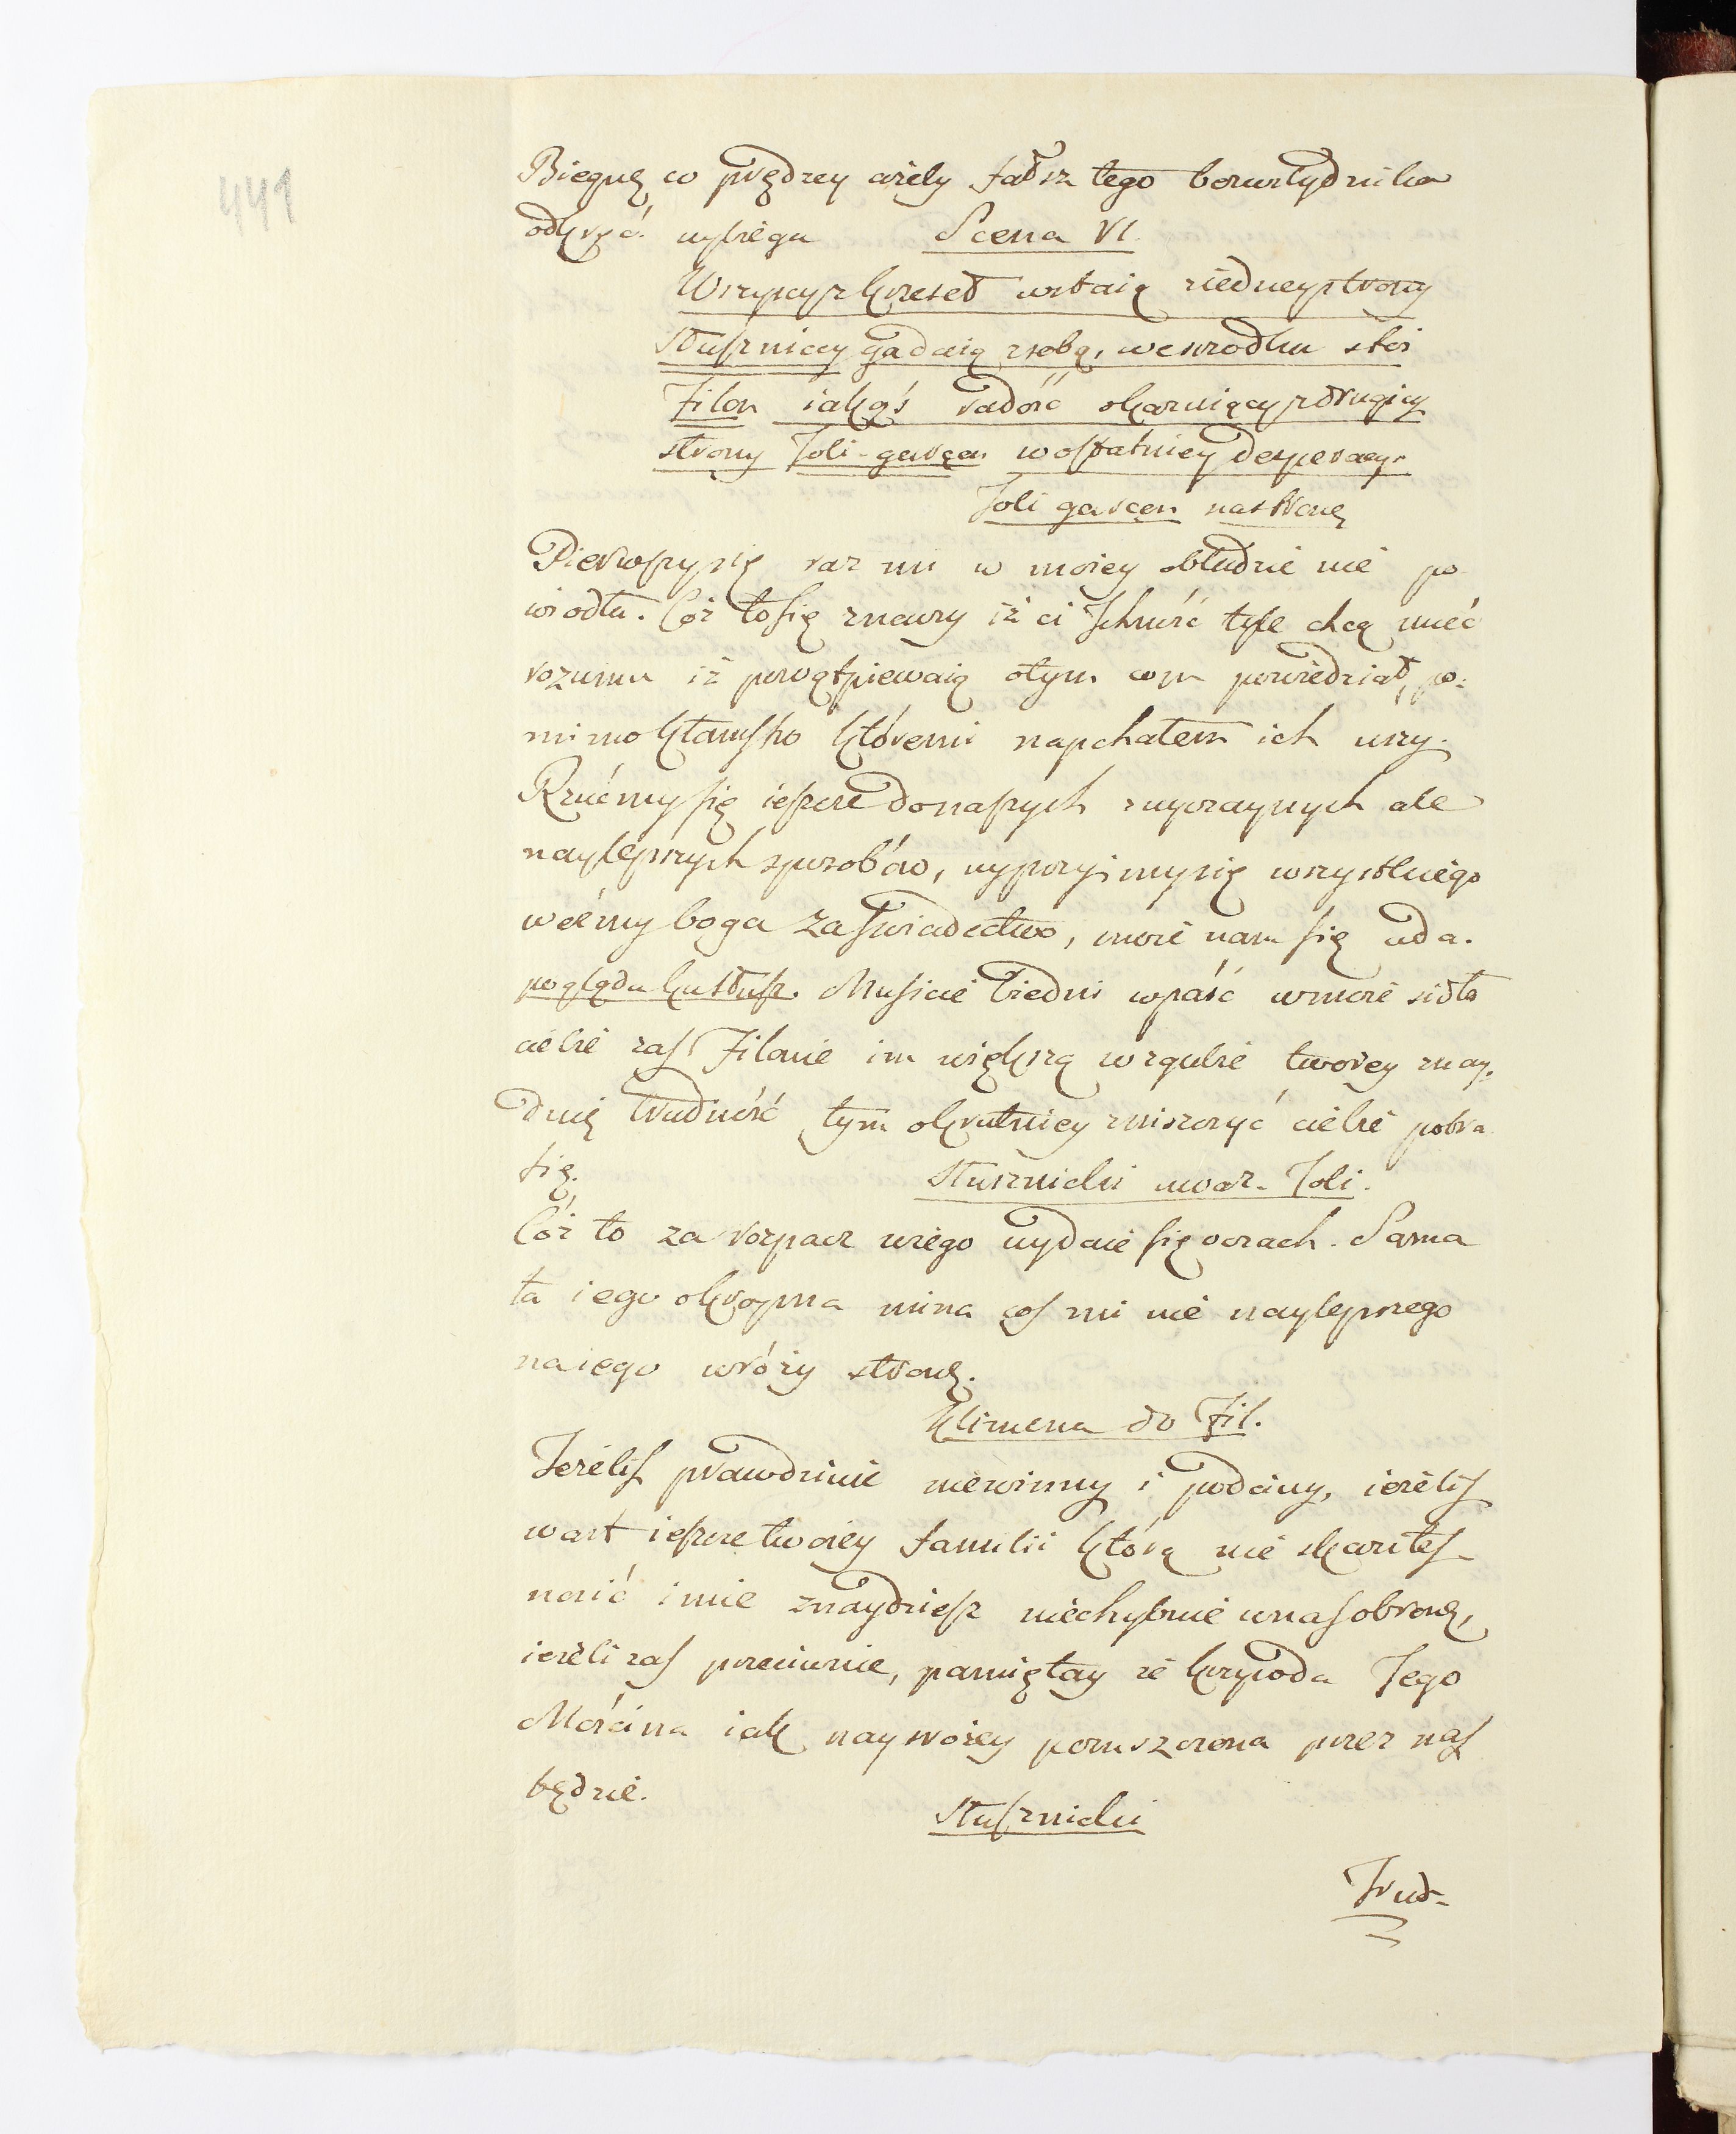 441
Biegnę co prędzey ażeby fałsz tego bezwstydnika
odkryć. wybiega Scena VI.
Wszyscy z krzeseł wstaią ziedney strony
Słuszniccy gadaią zsobą, weśrzodku stoi
Filon iakąś radość okazuiący z drugiey
strony Joli-garçon wostatniey desperacyi
Joli garçon nastronę
Pierwszy się raz mi w moiey obłudzie nie po
wiodła. Cóż tosię znaczy iż ci Ichmość tyle chcą mieć
rozumu iż powątpiewaią otym com powiedział, po:
mimo kłamstw któremi napchałem ich uszy.
Rzućmy się ieszcze donaszych zwyczaynych ale
naylepszych sposobów, wyprzyimy się wszystkiego
weźmy boga zaświadectwo, może nam się uda.
pogląda ku Słusz. Musicie biedni wpaść wmoie sidła
ciebie zaś Filonie im większą wzgubie twoiey znay:
duię trudność tym okrutniey zniszczyć ciebie potra
fię.
Słusznicki uważ. Joli.
Cóż to za rozpacz uiego wydaie się woczach. Sama
ta iego okropna mina coś mi nie naylepszego
naiego wróży stronę.
Klimena do Fil.
Jeżeliś prawdziwie niewinny i podciwy, ieżeliś
wart ieszcze twoiey familii którą nie skaziłeś
nosić imie znaydziesz niechybnie unas obronę,
ieżeli zaś przeciwnie, pamiętay że krzywda Jego
Mościna iak naysrożey pomszczona przez nas
będzie.
Słusznicki
Trud-